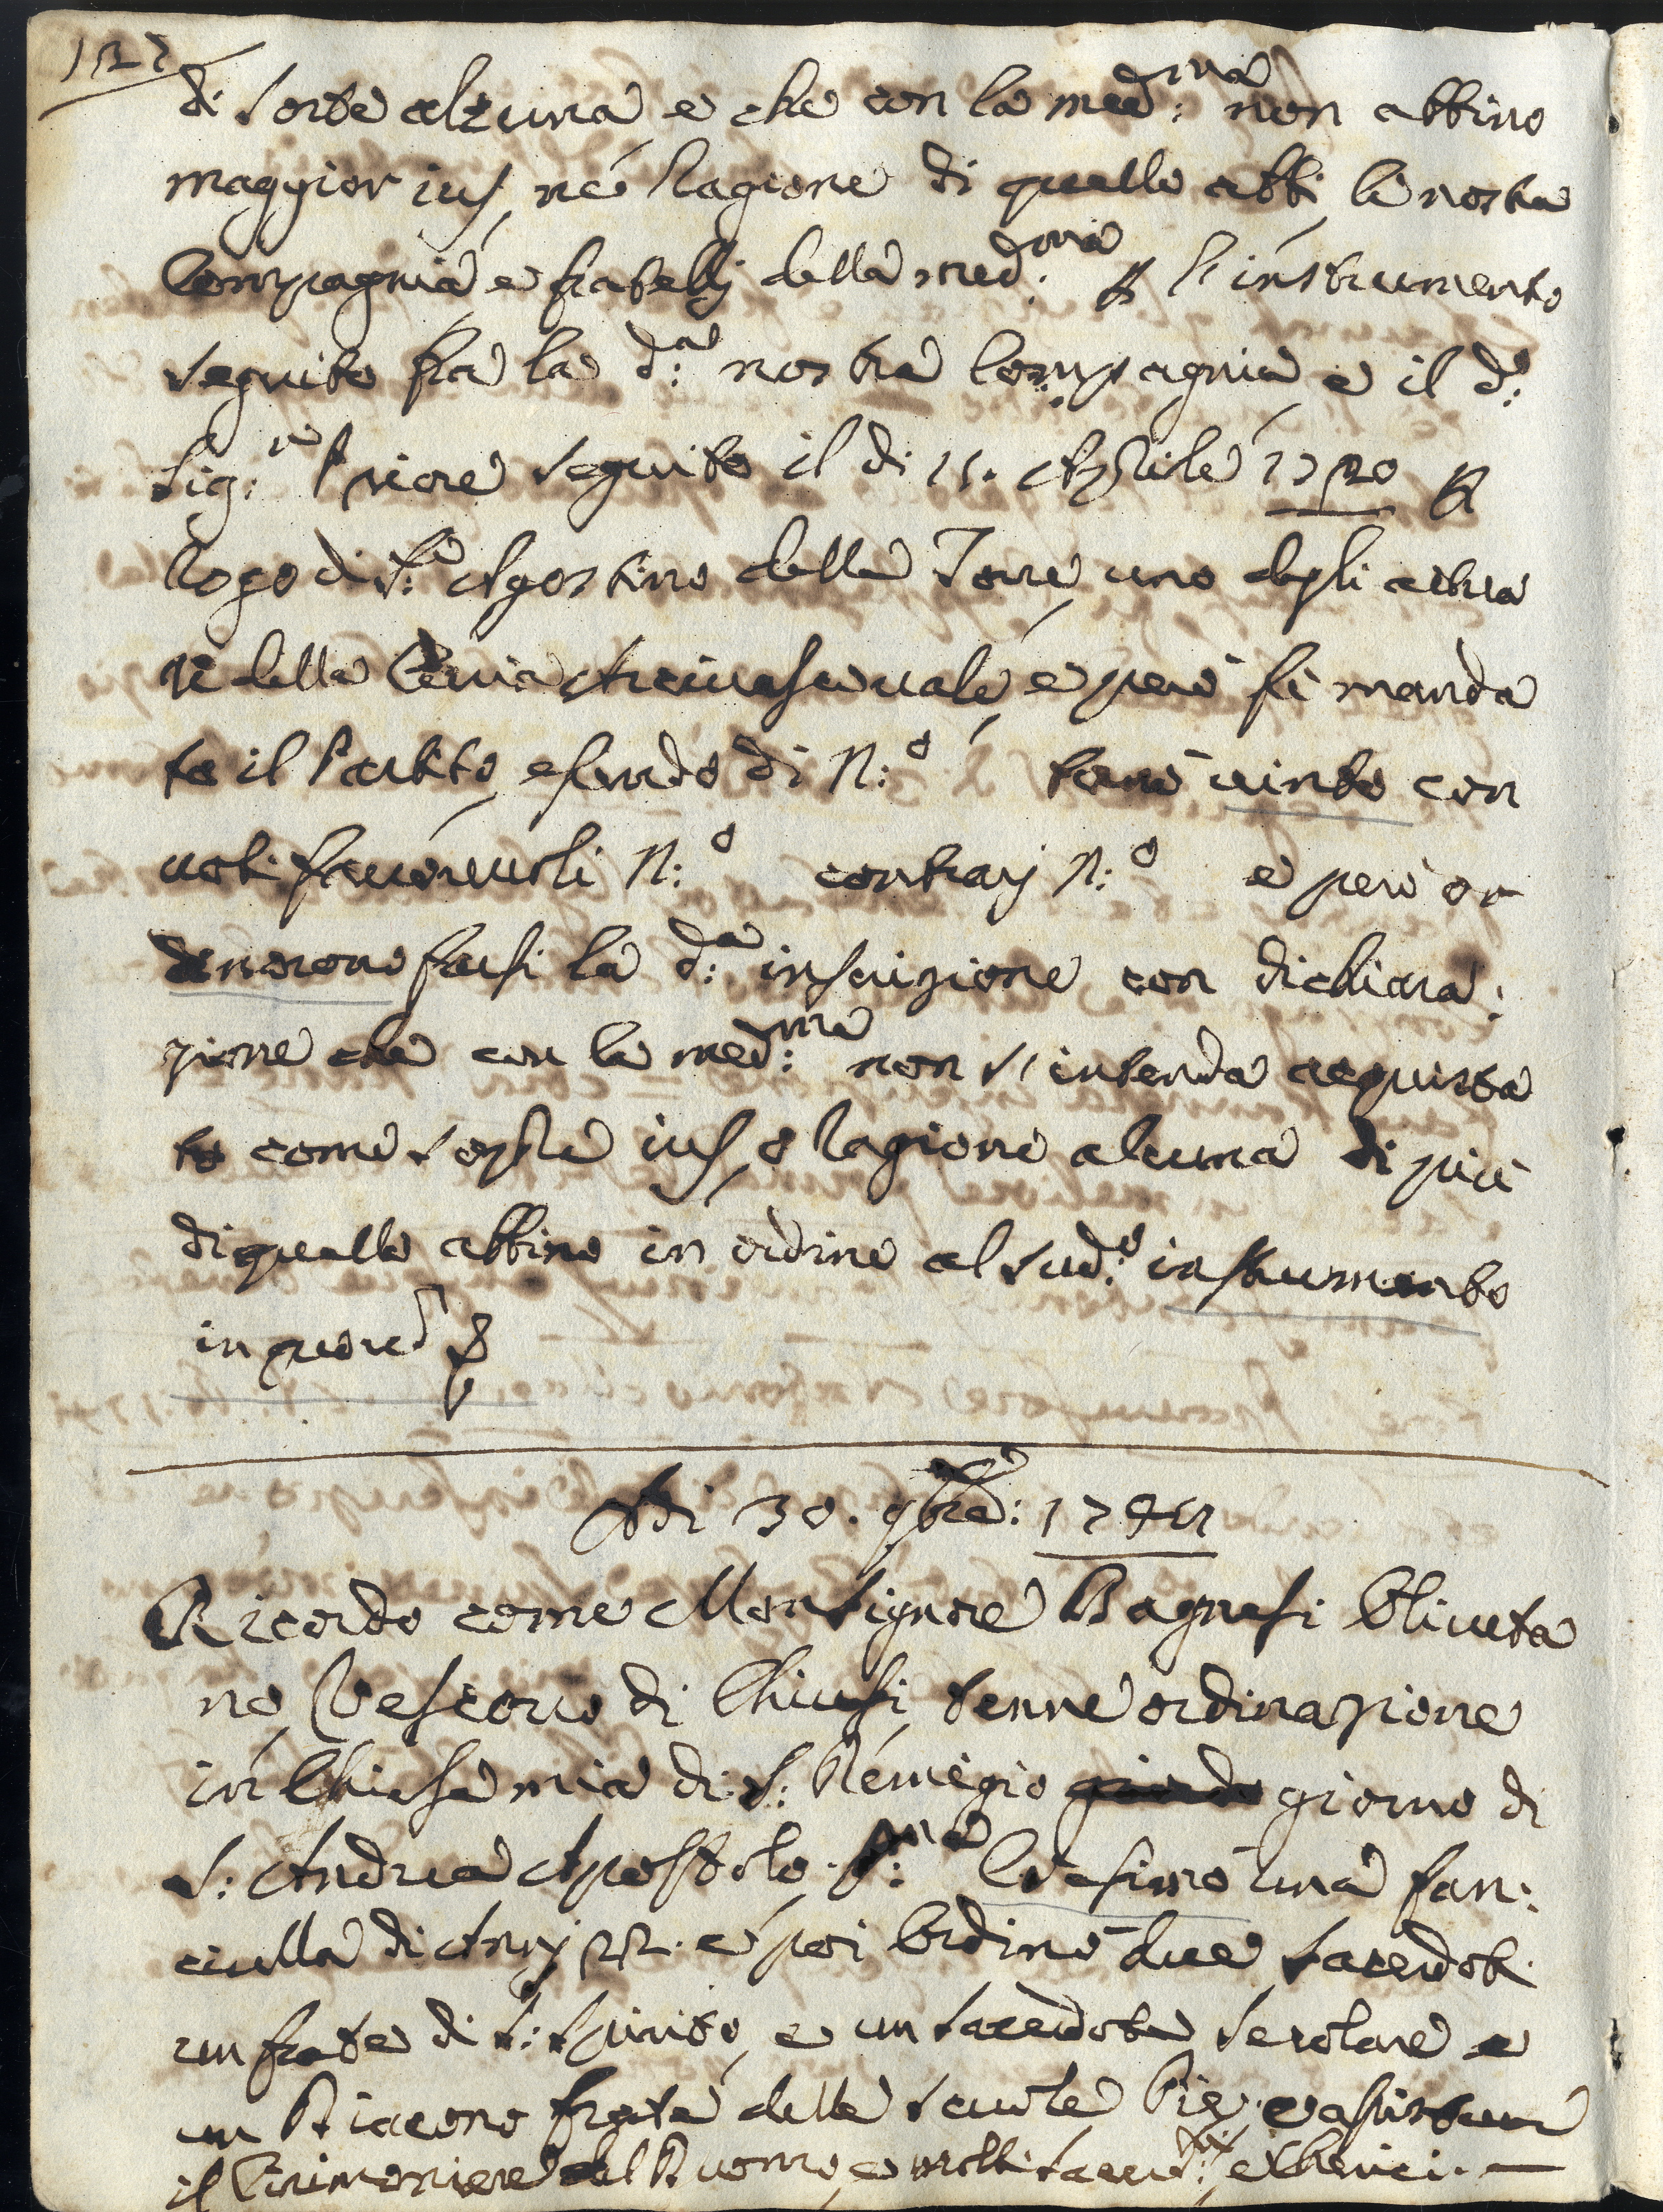 di sorte alcuna e che con la med:ma non abbino
maggior ius, né ragione di quello abbi la nostra
Compagnia e fratelli della med:ma p l'instrumento
seguito fra la d:a nostra Compagnia e il d:o
Sig:re Priore seguito il di 15. Aprile 1720 p
rogo di S:r Agostino della Torre uno degli attua
ri della Curia Arcivescovale, e però fù manda
to il Partito, essendo di N:o tornò vinto con
voti favorevoli N:o contrarj N:o e però or
dinorono farsi la d:a inscrizione con dichiara:
zione che con la med:ma non s'intenda acquista
to come sopra ius, o ragione alcuna di più
di quello abbino in ordine al sud:o instrumento
in quore
Adi 30. 9bre: 1741
Ricordo come Monsignore Bagnesi Oliveta
no Vescovo di Chiusi, tenne ordinazione
in Chiesa mia di S: Remigio giorno di
S: Andrea Apostolo. Cresimò una fan:
ciulla di Anni 22. e poi Ordinò due sacerdoti
un frate di S: Spirito, e un sacerdote secolare e
un Diacono frate delle scuole Pie, e assisterno
il Cirimoniere del Duomo, e molti sacerd:ti, e Cherici. —